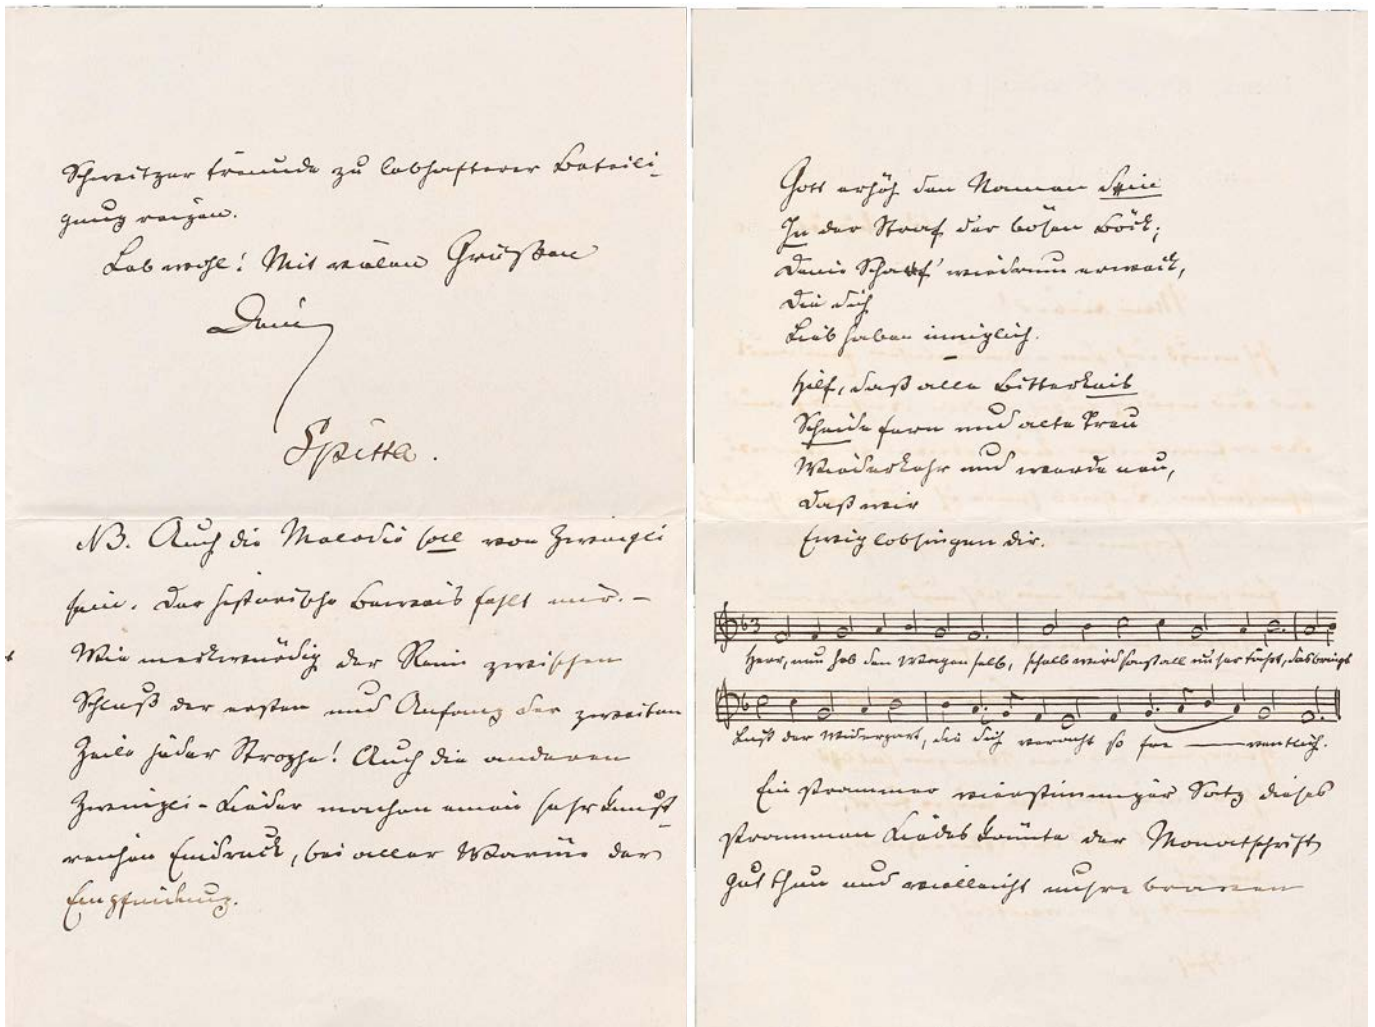 Schweitzer Freunde zu lebhafterer Beteili-
gung reizen.
Leb wohl! Mit vielen Grüßen
Dein
Spitta.
NB. Auch die Melodie soll von Zwingli
sein. Der historische Beweis fehlt mir. –
Wie merkwürdig der Reim zwischen
Schluß der ersten und Anfang der zweiten
Zeile jeder Strophe! Auch die anderen
Zwingli-Lieder machen einen sehr kunst-
reichen Eindruck, bei aller Wärme der
Empfindung.
Gott erhöh den Namen dein
In der Straf der bösen Böck;
Deine Schaf' wiedrum erweck,
Die dich
Lieb haben inniglich.
Hilf, daß alle Bitterkeit
Scheide fern und alte Treu
Wiederkehr und werde neu,
Daß wir
Ewig lobsingen dir.
Herr, nun heb den Wagen selb, schelb wird sonst all unser Fahrt, das brächt
Lust der Widerpart, die dich veracht so fre – ventlich.
Ein strammer vierstimmiger Satz dieses
strammen Liedes könnte der Monatschrift
gut thun und vielleicht unsre braven